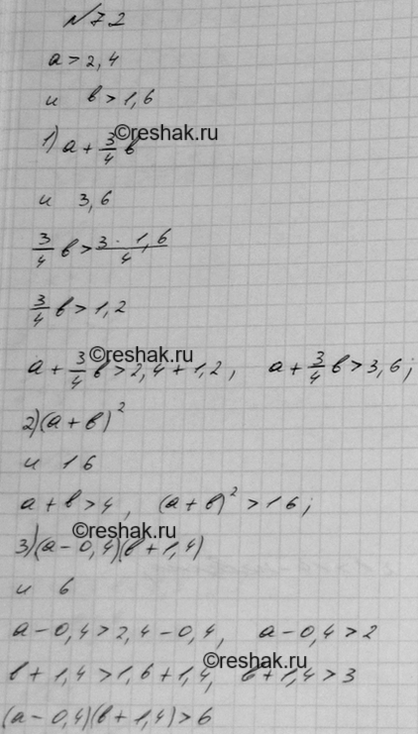 №72
a > 2,4
и b > 1,6
1) a + 3/4 b
©reshak.ru
и 3,6
3/4 b > 3 · 1,6/4
3/4 b > 1,2
©reshak.ru
a + 3/4 b > 2,4 + 1,2, a + 3/4 b > 3,6;
2) (a + b)²
и 16
a + b > 4, (a + b)² > 16;
3) (a - 0,4)(b + 1,4)
и 6
a - 0,4 > 2,4 - 0,4, a - 0,4 > 2
©reshak.ru
b + 1,4 > 1,6 + 1,4, b + 1,4 > 3
(a - 0,4)(b + 1,4) > 6